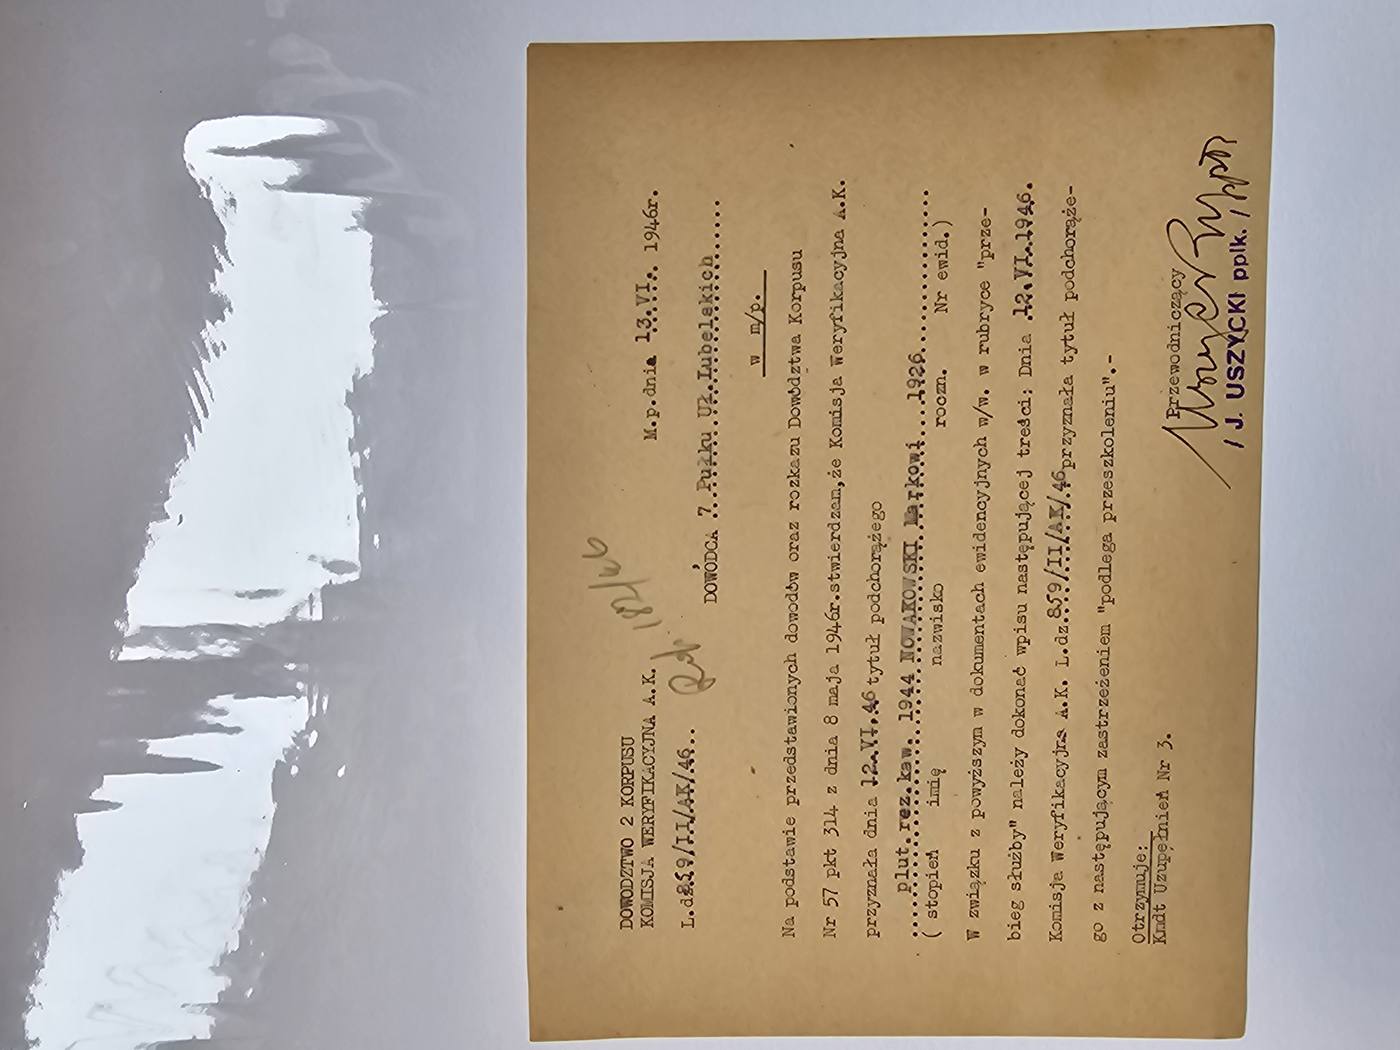 DOWODZTWO 2 KORPUSU
KOMISJA WERYFIKACYJNA A.K.
M.p.dnia 13.VI. 1946r.
L.dz859/II/AK/46..
Rub. 182/46
DOWÓDCA 7. Pułku Uł.Lubelskich......
w m/p.
Na podstawie przedstawionych dowodów oraz rozkazu Dowództwa Korpusu
Nr 57 pkt 314 z dnia 8 maja 1946r.stwierdzam,że Komisja Weryfikacyjna A.K.
przyznała dnia 12.VI.46 tytuł podchorążego
.....plut.rez.kaw. 1944 NOWAKOWSKI Markowi...1926..................
( stopień imię nazwisko roczn. Nr ewid.)
W związku z powyższym w dokumentach ewidencyjnych w/w. w rubryce "prze-
bieg służby" należy dokonać wpisu następującej treści: Dnia 12.VI.1946.
Komisja Weryfikacyjna A.K. L.dz.859/II/AK/46przyznała tytuł podchorąże-
go z następującym zastrzeżeniem "podlega przeszkoleniu".-
Otrzymuje:
Kmdt Uzupełnień Nr 3.
Przewodniczący
/ J. USZYCKI pplk. /